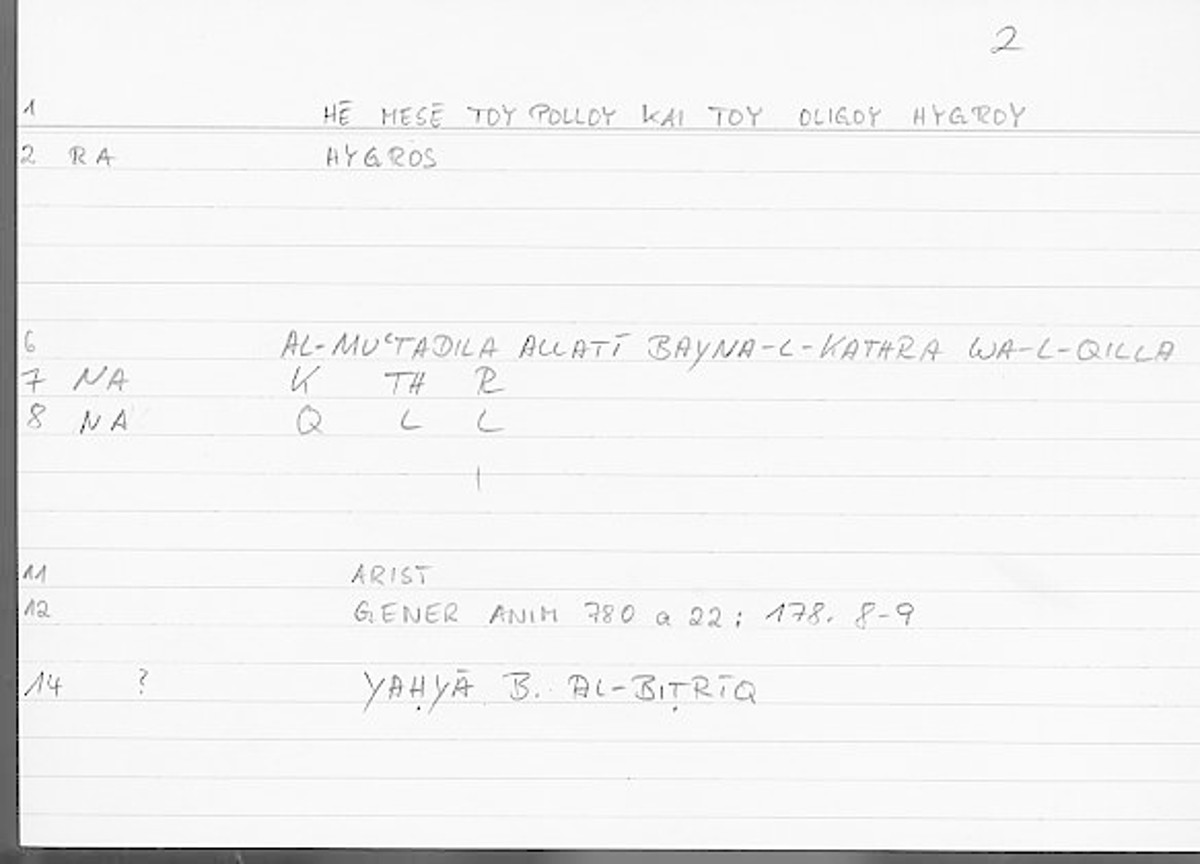 2
1 HĒ MESĒ TOY POLLOY KAI TOY OLIGOY HYGROY
2 RA HYGROS
6 AL-MUʿTADILA ALLATĪ BAYNA-L-KATHRA WA-L-QILLA
7 NA K TH R
8 NA Q L L
11 ARIST
12 GENER ANIM 780 a 22; 178. 8-9
14 ? YAḤYĀ B. AL-BIṬRĪQ